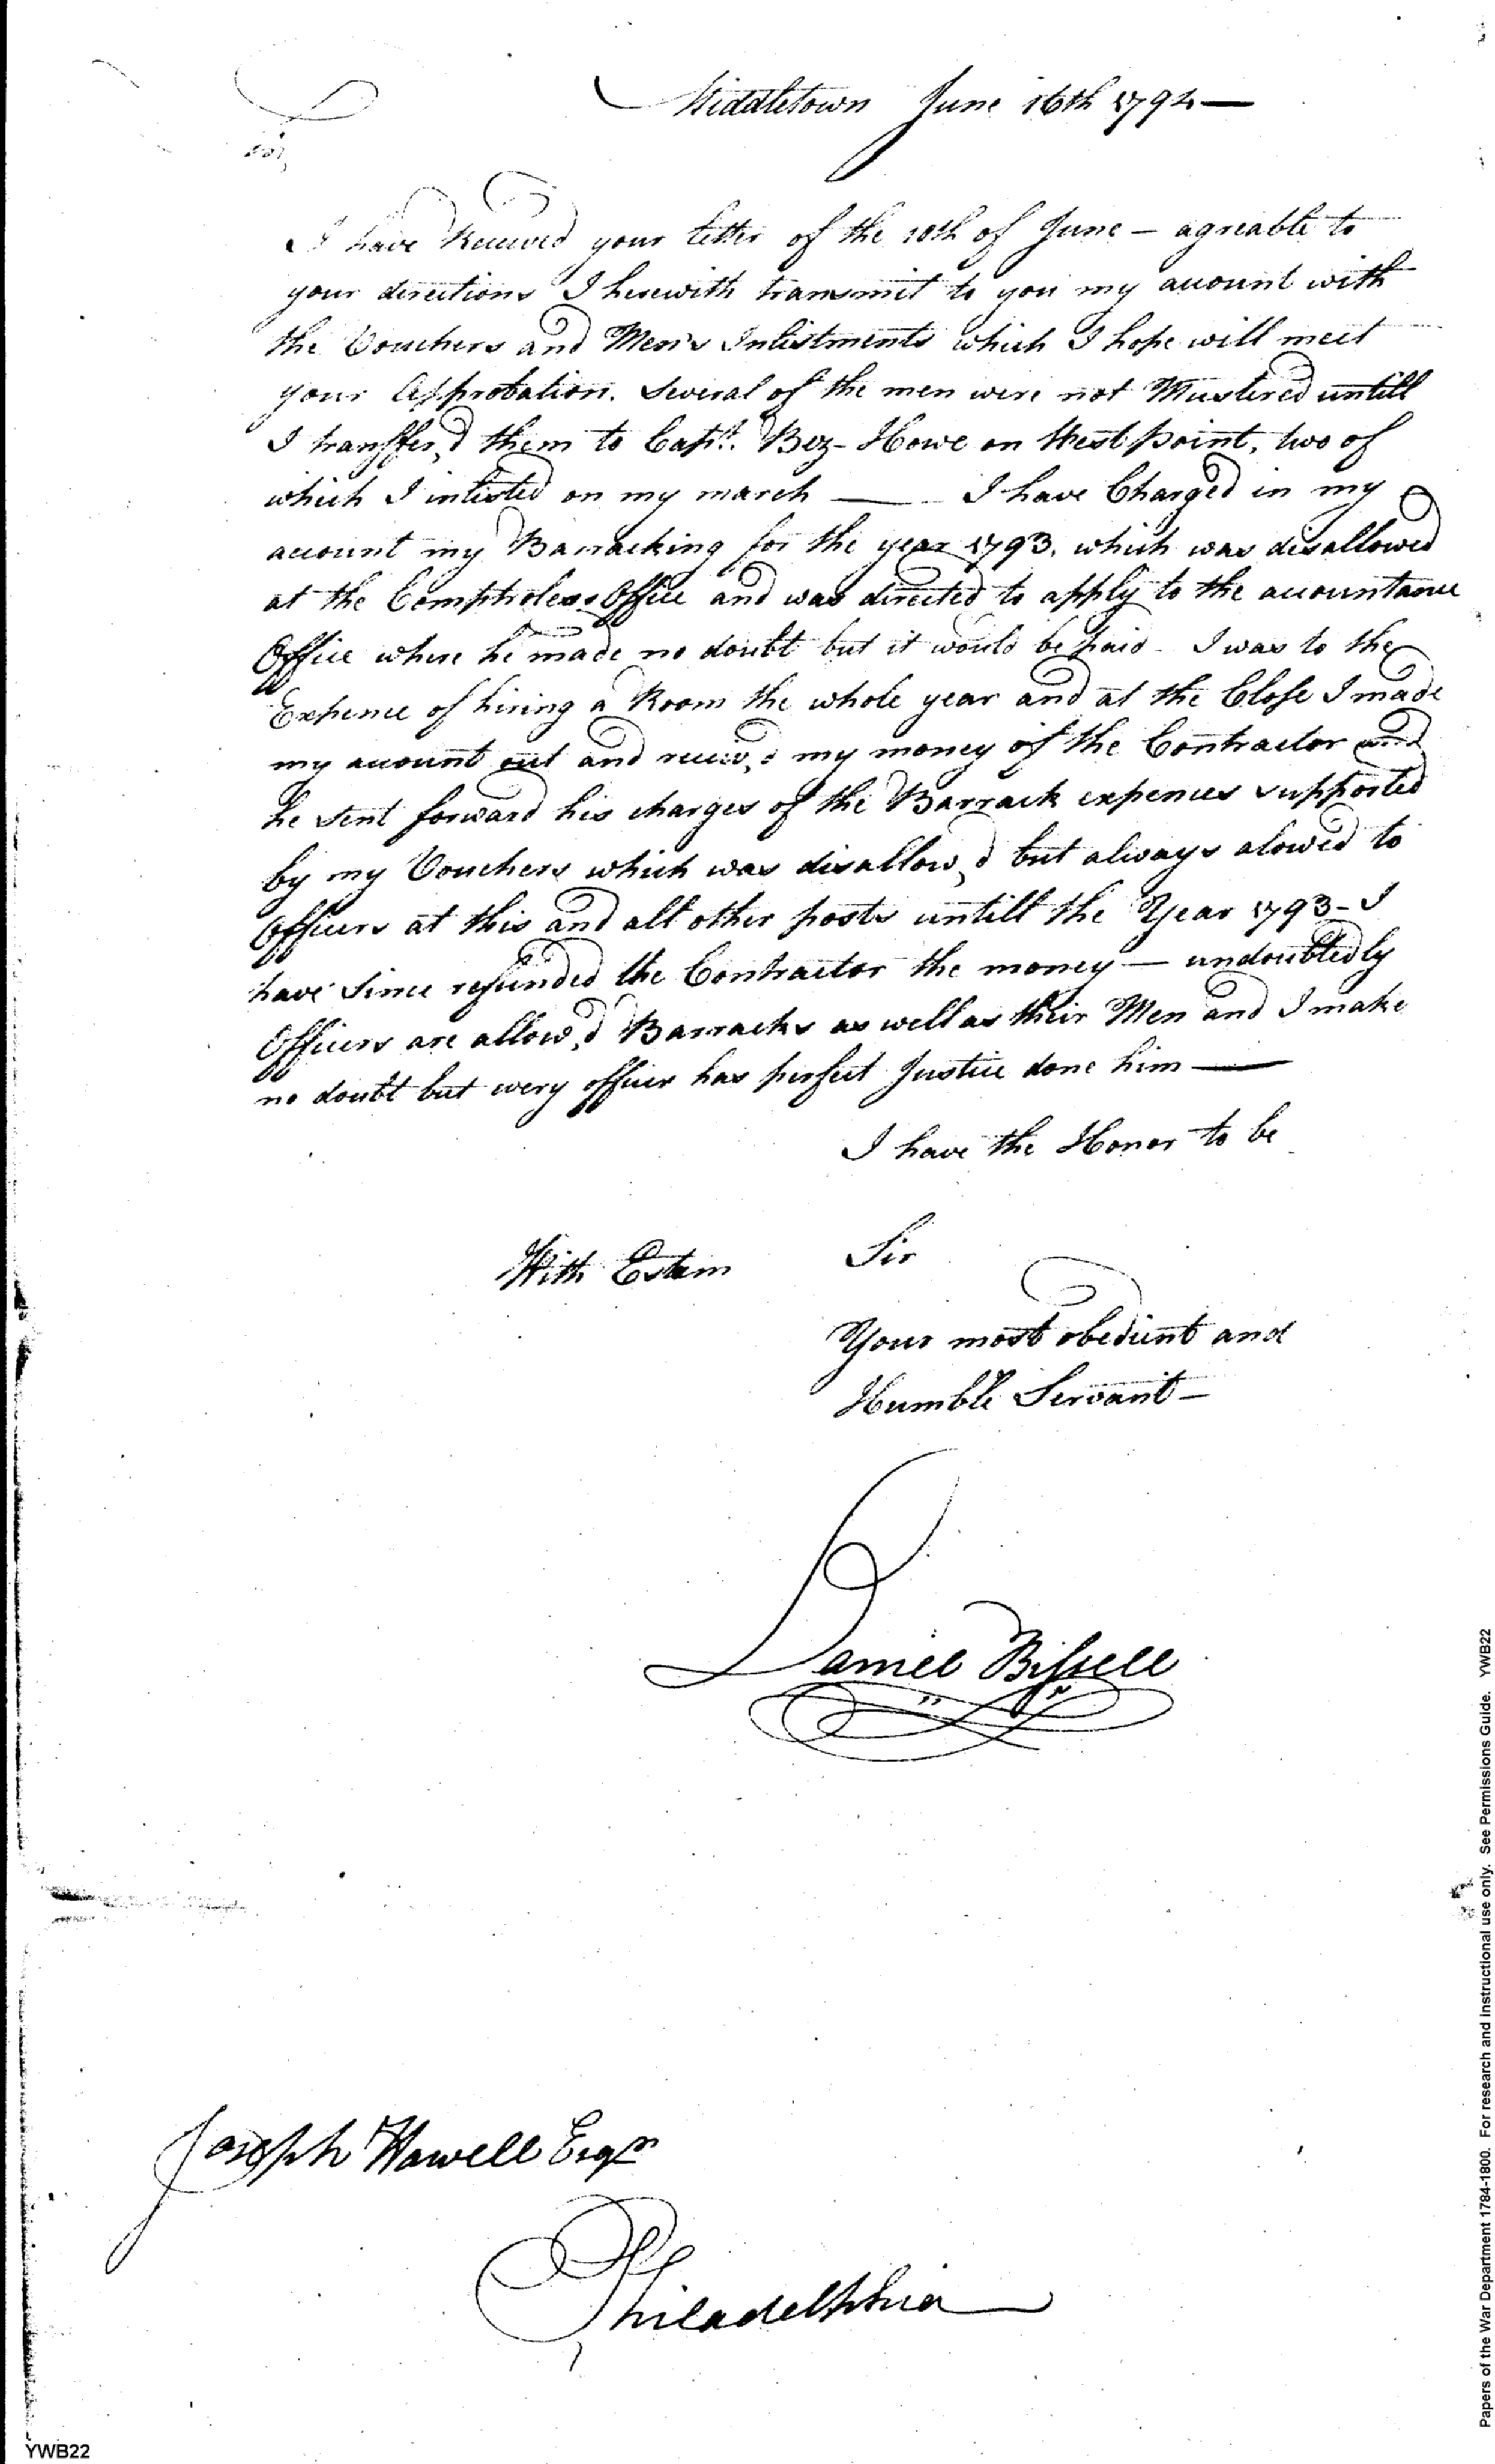 Middletown June 16th 1794 —
Sir,
I have Received your letter of the 10th of June – agreable to
your directions I herewith transmit to you my account with
the Vouchers and Men's Inlistments which I hope will meet
your Approbation. Several of the men were not Mustered untill
I transffer,d them to Capt. Bez- Howe on West point, two of
which I inlisted on my march — I have Charged in my
account my Barracking for the year 1793. which was disallowed
at the Comptrolers Office and was directed to apply to the accountance
Office where he made no doubt but it would be paid – I was to the
Expence of hiring a Room the whole year and at the Close I made
my account out and receiv,d my money of the Contractor and
he sent forward his charges of the Barrack expences supported
by my Vouchers which was disallow,d but always alowed to
Officers at this and all other posts untill the Year 1793 – I
have since refunded the Contractor the money — undoubtedly
Officers are allow,d Barracks as well as their Men and I make
no doubt but every officer has perfect Justice done him —
I have the Honor to be
With Esteem Sir
Your most obedient and
Humble Servant –
Daniel Bissell
Joseph Howell Esqr
Philadelphia
YWB22
Papers of the War Department 1784-1800. For research and instructional use only. See Permissions Guide. YWB22